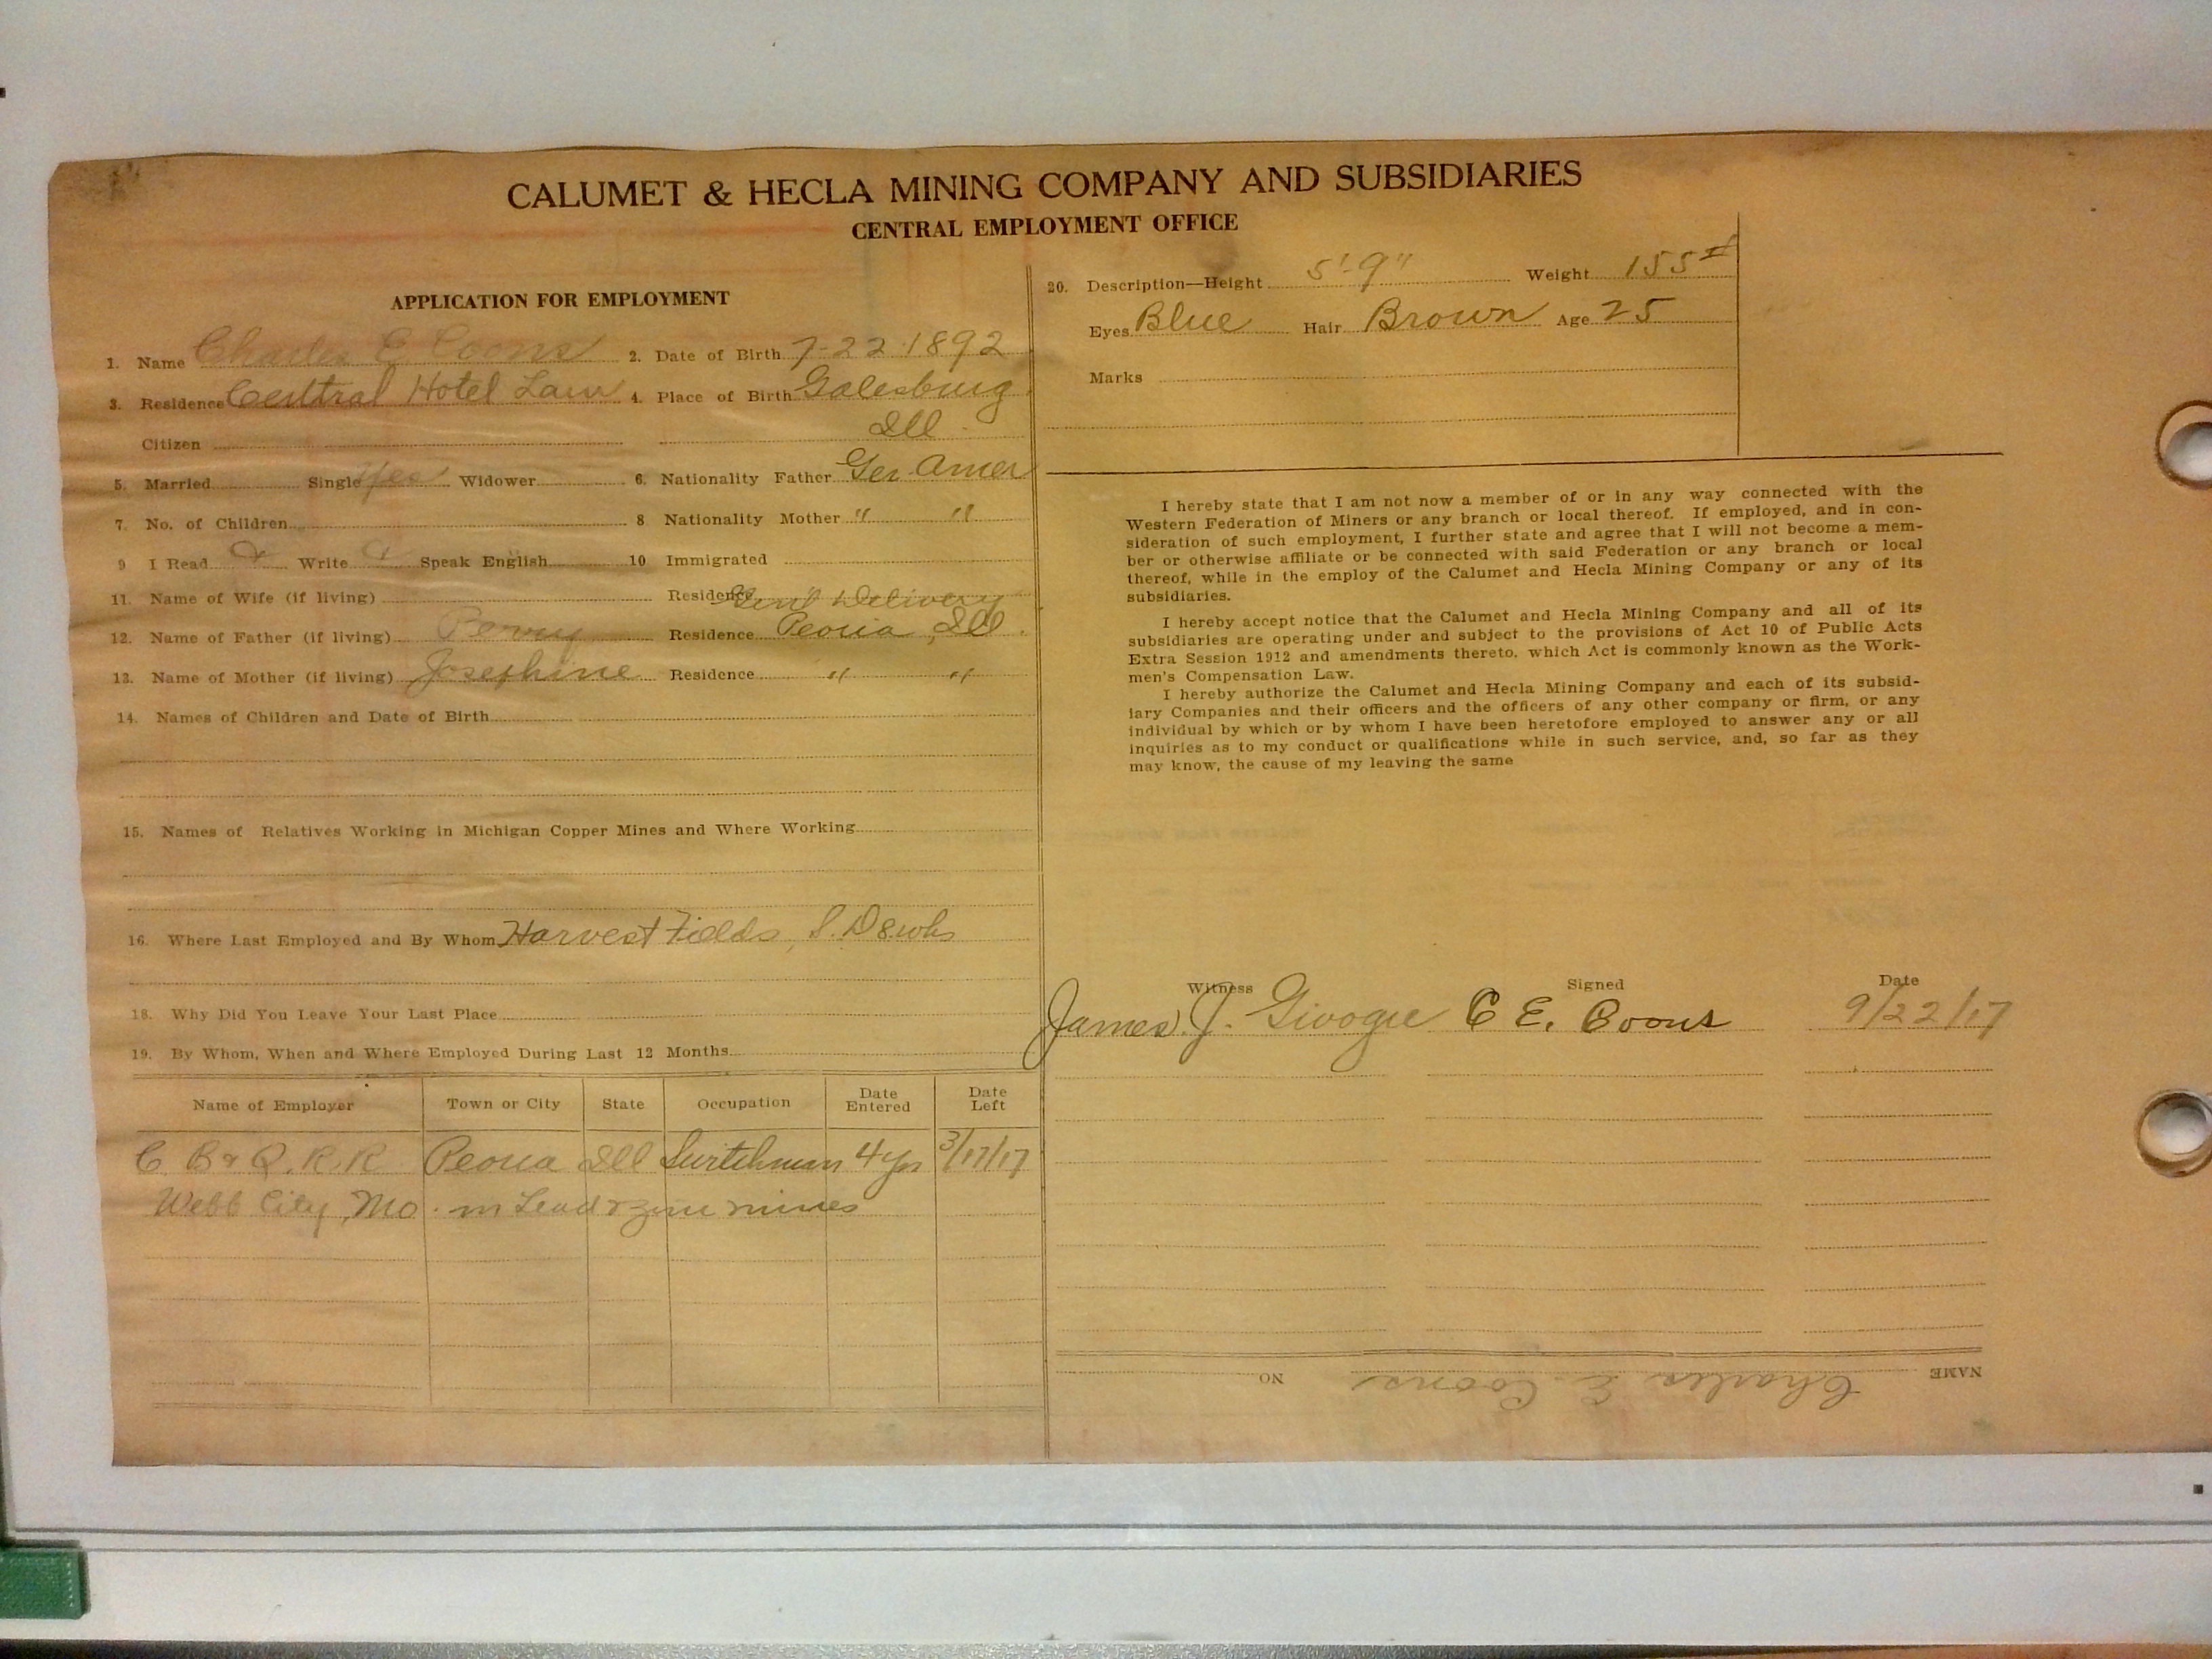 CALUMET & HECLA MINING COMPANY AND SUBSIDIARIES
CENTRAL EMPLOYMENT OFFICE
APPLICATION FOR EMPLOYMENT
1. Name Charles E. Coons 2. Date of Birth 7-22-1892
3. Residence Central Hotel Laur 4. Place of Birth Galesburg
Citizen Ill
5. Married Single yes Widower 6. Nationality Father Ger Amer
7. No. of Children 8 Nationality Mother " "
9 I Read Write Speak English 10 Immigrated
11. Name of Wife (if living) Residence Gen'l Delivery
12. Name of Father (if living) Perry Residence Peoria, Ill.
13. Name of Mother (if living) Josephine Residence " "
14. Names of Children and Date of Birth
15. Names of Relatives Working in Michigan Copper Mines and Where Working
16. Where Last Employed and By Whom Harvest Fields, S. D 8 wks
18. Why Did You Leave Your Last Place
19. By Whom, When and Where Employed During Last 12 Months
Name of Employer Town or City State Occupation Date Entered Date Left
C B & Q. R. R Peoria Ill Switchman 4 yrs 3/17/17
Webb City, Mo. in Lead & zinc mines
20. Description—Height 5'-9" Weight 155#
Eyes Blue Hair Brown Age 25
Marks
I hereby state that I am not now a member of or in any way connected with the
Western Federation of Miners or any branch or local thereof. If employed, and in con-
sideration of such employment, I further state and agree that I will not become a mem-
ber or otherwise affiliate or be connected with said Federation or any branch or local
thereof, while in the employ of the Calumet and Hecla Mining Company or any of its
subsidiaries.
I hereby accept notice that the Calumet and Hecla Mining Company and all of its
subsidiaries are operating under and subject to the provisions of Act 10 of Public Acts
Extra Session 1912 and amendments thereto, which Act is commonly known as the Work-
men's Compensation Law.
I hereby authorize the Calumet and Hecla Mining Company and each of its subsid-
iary Companies and their officers and the officers of any other company or firm, or any
individual by which or by whom I have been heretofore employed to answer any or all
inquiries as to my conduct or qualifications while in such service, and, so far as they
may know, the cause of my leaving the same
Witness Signed Date
James J. C E. Coons 9/22/17
NAME Charles E. Coons NO